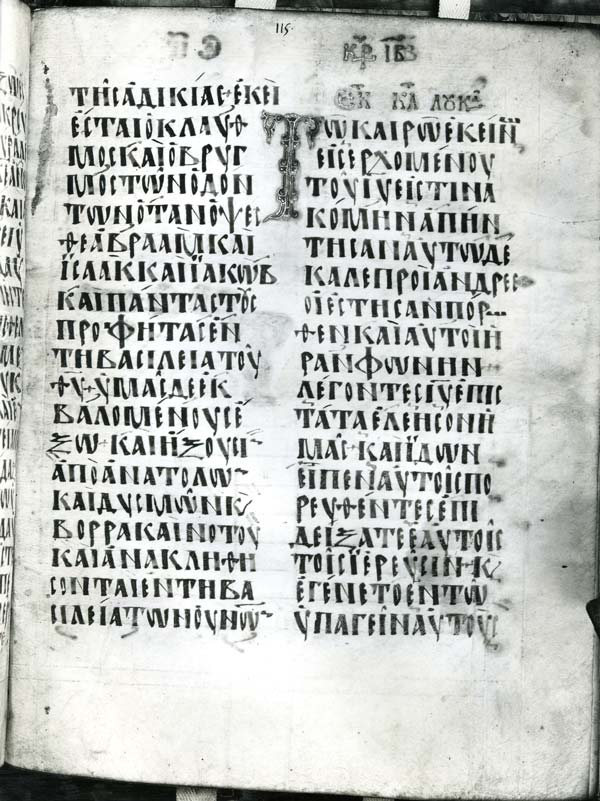 115
ΤΗΣ ΑΔΙΚΙΑΣ + ΕΚΕΙ
ΕΣΤΑΙ Ο ΚΛΑΥΘ
ΜΟΣ ΚΑΙ Ο ΒΡΥΓ
ΜΟΣ ΤΩΝ ΟΔΟΝ
ΤΩΝ ΟΤΑΝ ΟΨΕΣ
ΘΕ ΑΒΡΑΑΜ ΚΑΙ
ΙΣΑΑΚ ΚΑΙ ΙΑΚΩΒ
ΚΑΙ ΠΑΝΤΑΣ ΤΟΥΣ
ΠΡΟΦΗΤΑΣ ΕΝ
ΤΗ ΒΑΣΙΛΕΙΑ ΤΟΥ
ΘΥ + ΥΜΑΣ ΔΕ ΕΚ
ΒΑΛΟΜΕΝΟΥΣ Ε
ΞΩ + ΚΑΙ ΗΞΟΥΣΙ
ΑΠΟ ΑΝΑΤΟΛΩ
ΚΑΙ ΔΥΣΜΩΝ Κ
ΒΟΡΡΑ ΚΑΙ ΝΟΤΟΥ
ΚΑΙ ΑΝΑΚΛΗΘΗ
ΣΟΝΤΑΙ ΕΝ ΤΗ ΒΑ
ΣΙΛΕΙΑ ΤΩΝ ΟΥΝΩ
ΚΥΡ ΙΒ
ΕΚ ΚΑ ΛΟΥΚ
ΤΩ ΚΑΙΡΩ ΕΚΕΙΝ
ΕΙΣΕΡΧΟΜΕΝΟΥ
ΤΟΥ ΙΥ ΕΙΣ ΤΙΝΑ
ΚΟΜΗΝ ΑΠΗΝ
ΤΗΣΑΝ ΑΥΤΩ ΔΕ
ΚΑ ΛΕΠΡΟΙ ΑΝΔΡΕΣ
ΟΙ ΕΣΤΗΣΑΝ ΠΟΡ
ΘΕΝ ΚΑΙ ΑΥΤΟΙ Η
ΡΑΝ ΦΩΝΗΝ
ΛΕΓΟΝΤΕΣ ΙΥ ΕΠΙΣ
ΤΑΤΑ ΕΛΕΗΣΟΝ Η
ΜΑΣ + ΚΑΙ ΙΔΩΝ
ΕΙΠΕΝ ΑΥΤΟΙΣ ΠΟ
ΡΕΥΘΕΝΤΕΣ ΕΠΙ
ΔΕΙΞΑΤΕ ΕΑΥΤΟΙΣ
ΤΟΙΣ ΙΕΡΕΥΣΙΝ + Κ
ΕΓΕΝΕΤΟ ΕΝ ΤΩ
ΥΠΑΓΕΙΝ ΑΥΤΟΥΣ